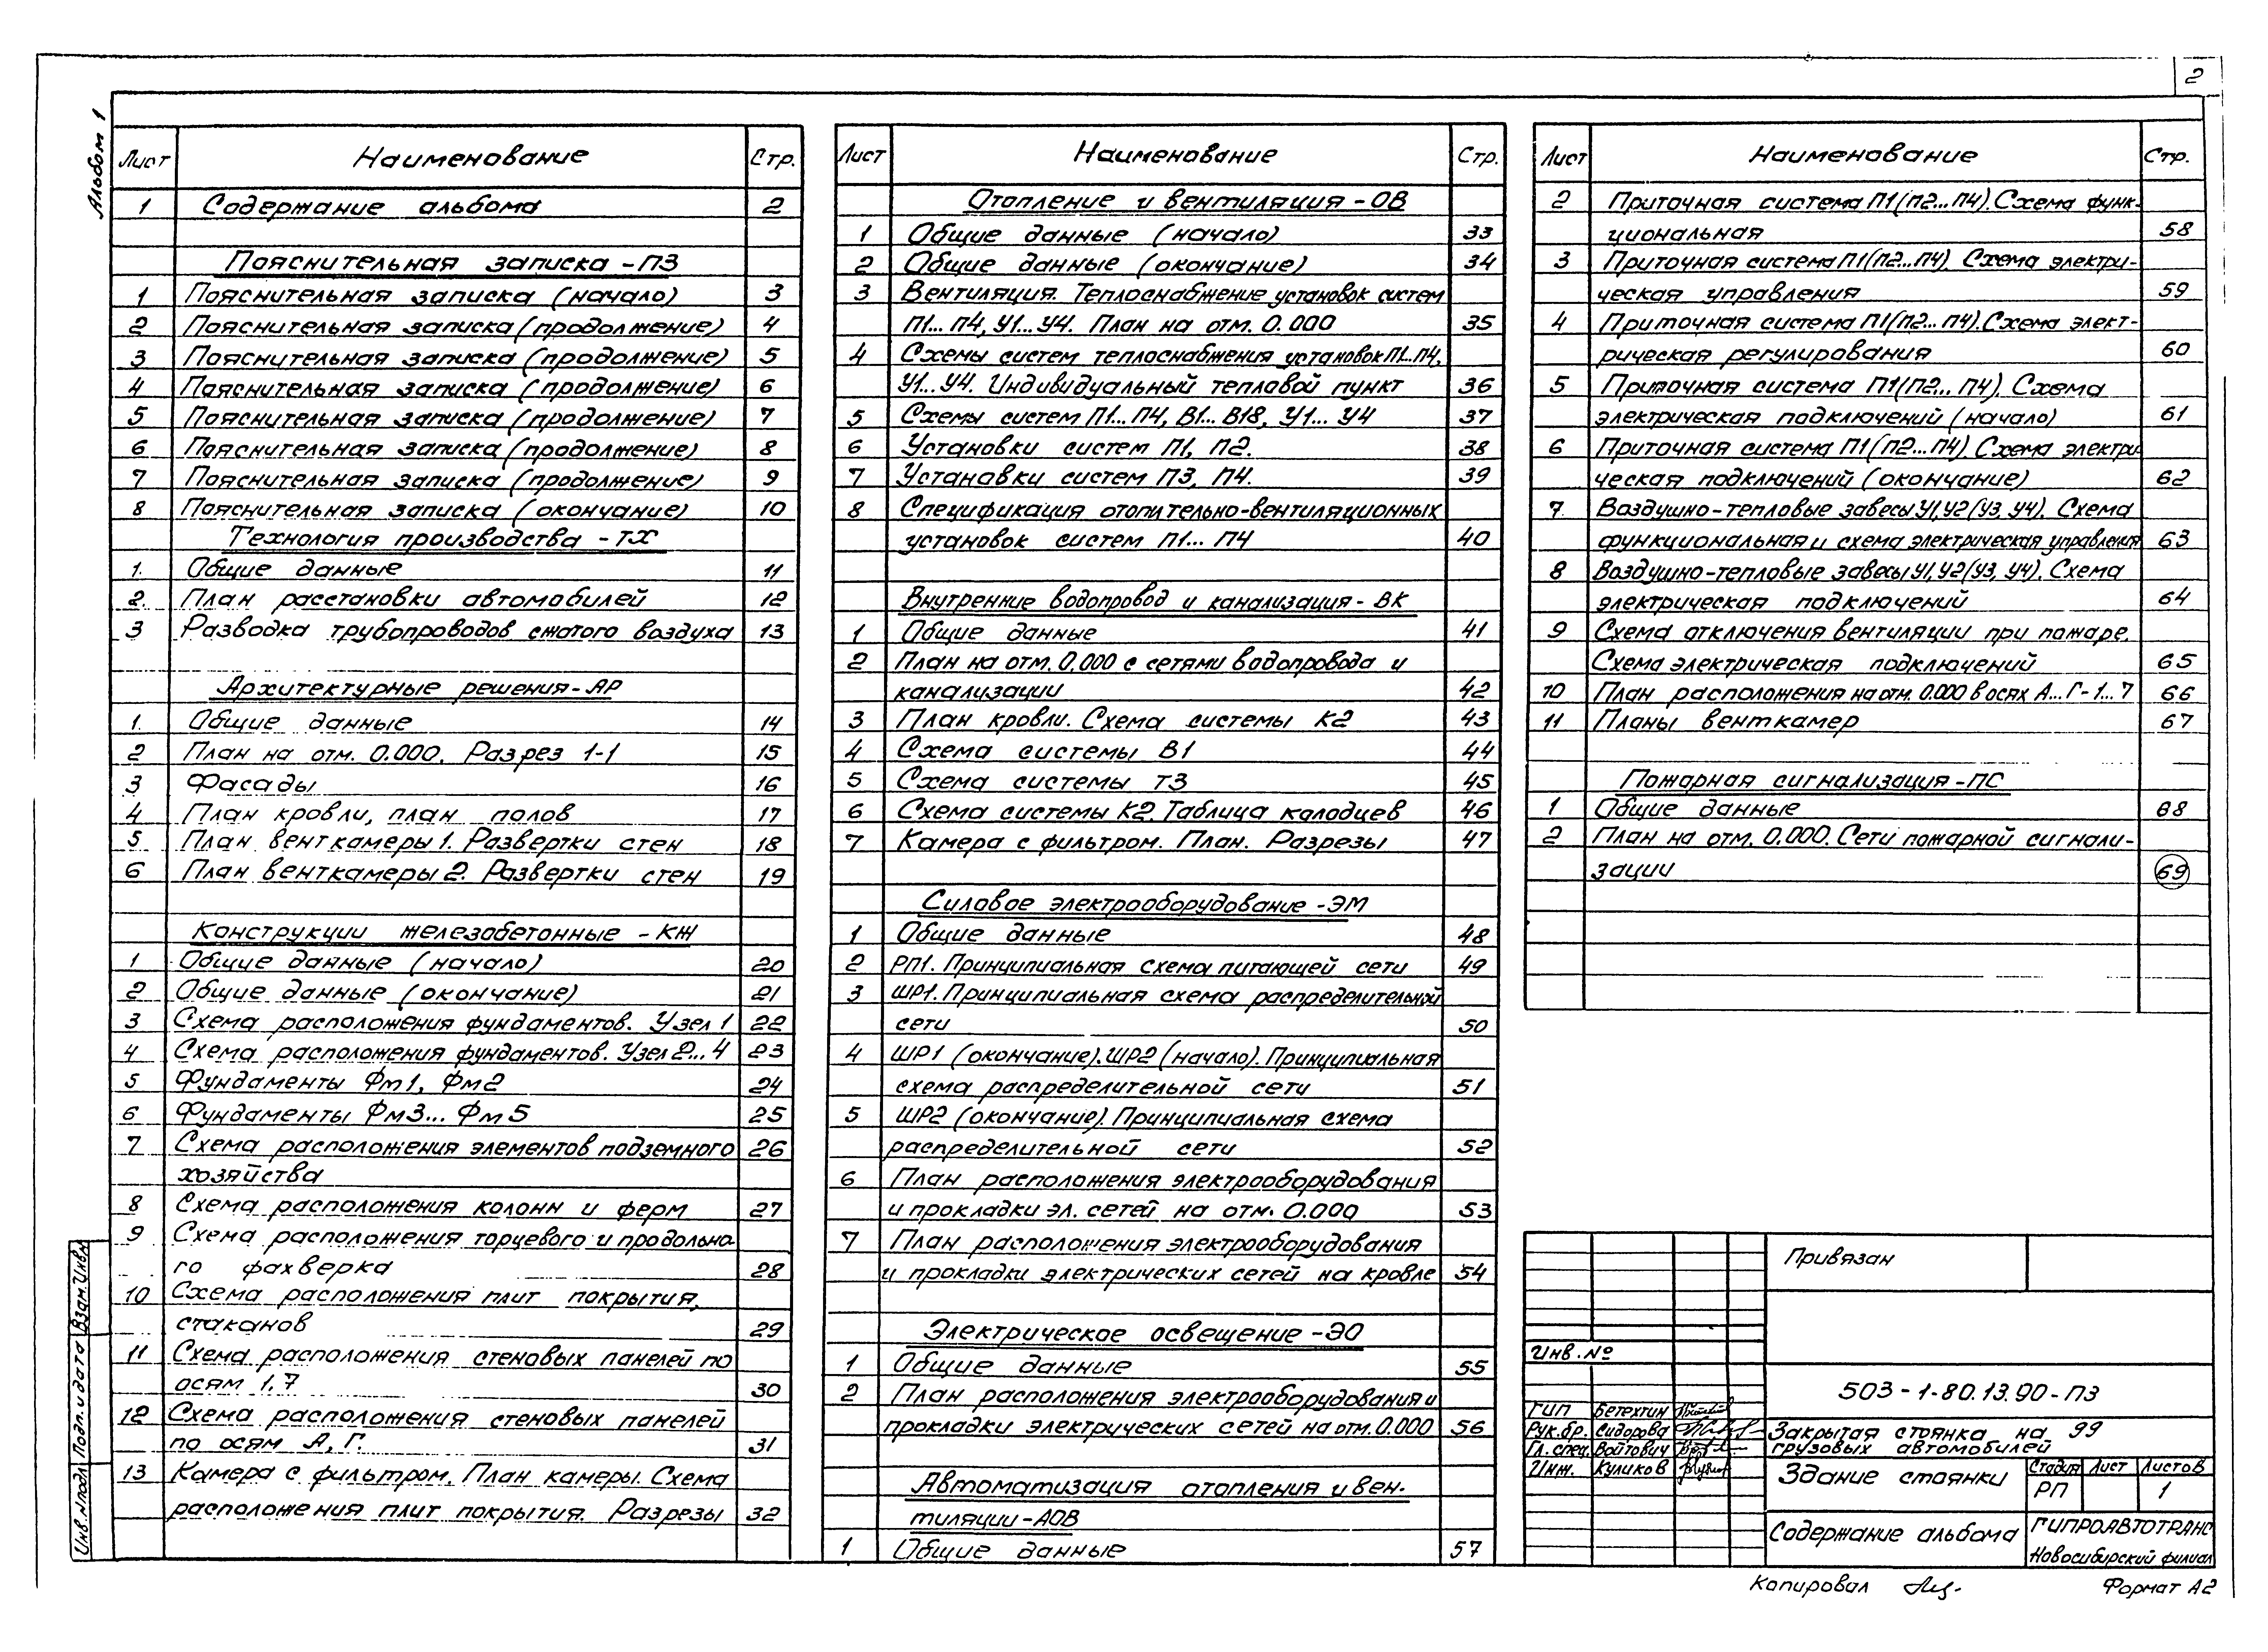 2
Альбом 1
Лист Наименование Стр.
1 Содержание альбома 2
Пояснительная записка - ПЗ
1 Пояснительная записка (начало) 3
2 Пояснительная записка (продолжение) 4
3 Пояснительная записка (продолжение) 5
4 Пояснительная записка (продолжение) 6
5 Пояснительная записка (продолжение) 7
6 Пояснительная записка (продолжение) 8
7 Пояснительная записка (продолжение) 9
8 Пояснительная записка (окончание) 10
Технология производства - ТХ
1. Общие данные 11
2. План расстановки автомобилей 12
3 Разводка трубопроводов сжатого воздуха 13
Архитектурные решения - АР
1. Общие данные 14
2 План на отм. 0.000. Разрез 1-1 15
3 Фасады 16
4 План кровли, план полов 17
5 План венткамеры 1. Развертки стен 18
6 План венткамеры 2. Развертки стен 19
Конструкции железобетонные - КЖ
1 Общие данные (начало) 20
2 Общие данные (окончание) 21
3 Схема расположения фундаментов. Узел 1 22
4 Схема расположения фундаментов. Узел 2...4 23
5 Фундаменты Фм1, Фм2 24
6 Фундаменты Фм3... Фм5 25
7 Схема расположения элементов подземного 26
хозяйства
8 Схема расположения колонн и ферм 27
9 Схема расположения торцевого и продольно-
го фахверка 28
10 Схема расположения плит покрытия,
стаканов 29
11 Схема расположения стеновых панелей по
осям 1,7 30
12 Схема расположения стеновых панелей
по осям А, Г. 31
13 Камера с фильтром. План камеры. Схема
расположения плит покрытия. Разрезы 32
Лист Наименование Стр.
Отопление и вентиляция - ОВ
1 Общие данные (начало) 33
2 Общие данные (окончание) 34
3 Вентиляция. Теплоснабжение установок систем
П1... П4, У1... У4. План на отм. 0.000 35
4 Схемы систем теплоснабжения установок П1...П4,
У1... У4. Индивидуальный тепловой пункт 36
5 Схемы систем П1... П4, В1... В18, У1... У4 37
6 Установки систем П1, П2. 38
7 Установки систем П3, П4. 39
8 Спецификация отопительно-вентиляционных
установок систем П1... П4 40
Внутренние водопровод и канализация - ВК
1 Общие данные 41
2 План на отм. 0.000 с сетями водопровода и
канализации 42
3 План кровли. Схема системы К2 43
4 Схема системы В1 44
5 Схема системы Т3 45
6 Схема системы К2. Таблица колодцев 46
7 Камера с фильтром. План. Разрезы 47
Силовое электрооборудование - ЭМ
1 Общие данные 48
2 РП1. Принципиальная схема питающей сети 49
3 ШР1. Принципиальная схема распределительной
сети 50
4 ШР1 (окончание). ШР2 (начало). Принципиальная
схема распределительной сети 51
5 ШР2 (окончание). Принципиальная схема
распределительной сети 52
6 План расположения электрооборудования
и прокладки эл. сетей на отм. 0.000 53
7 План расположения электрооборудования
и прокладки электрических сетей на кровле 54
Электрическое освещение - ЭО
1 Общие данные 55
2 План расположения электрооборудования и
прокладки электрических сетей на отм. 0.000 56
Автоматизация отопления и вен-
тиляции - АОВ
1 Общие данные 57
Лист Наименование Стр.
2 Приточная система П1 (П2... П4). Схема функ-
циональная 58
3 Приточная система П1 (П2... П4). Схема электри-
ческая управления 59
4 Приточная система П1 (П2... П4). Схема элект-
рическая регулирования 60
5 Приточная система П1 (П2... П4). Схема
электрическая подключений (начало) 61
6 Приточная система П1 (П2... П4). Схема электри-
ческая подключений (окончание) 62
7. Воздушно-тепловые завесы У1, У2 (У3, У4). Схема
функциональная и схема электрическая управления 63
8 Воздушно-тепловые завесы У1, У2 (У3, У4). Схема
электрическая подключений 64
9 Схема отключения вентиляции при пожаре.
Схема электрическая подключений 65
10 План расположения на отм. 0.000 в осях А...Г - 1...7 66
11 Планы венткамер 67
Пожарная сигнализация - ПС
1 Общие данные 68
2 План на отм. 0.000. Сети пожарной сигнали-
зации 69
Привязан
Инв. №
503-1-80.13.90-ПЗ
ГИП Бетехтин
Рук.бр. Сидорова
Гл. спец. Войтович
Инж. Куликов
Закрытая стоянка на 99
грузовых автомобилей
Здание стоянки
Стадия Лист Листов
РП 1
Содержание альбома
ГИПРОАВТОТРАНС
Новосибирский филиал
Копировал
Формат А2
Инв. № подл. Подп. и дата Взам. инв. №